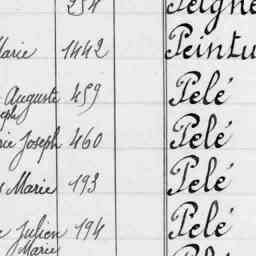 254 Peigne
Marie 1442 Peintu
Auguste 459 Pelé
Joseph 460 Pelé
Marie 193 Pelé
Julien 194 Pelé
Marie